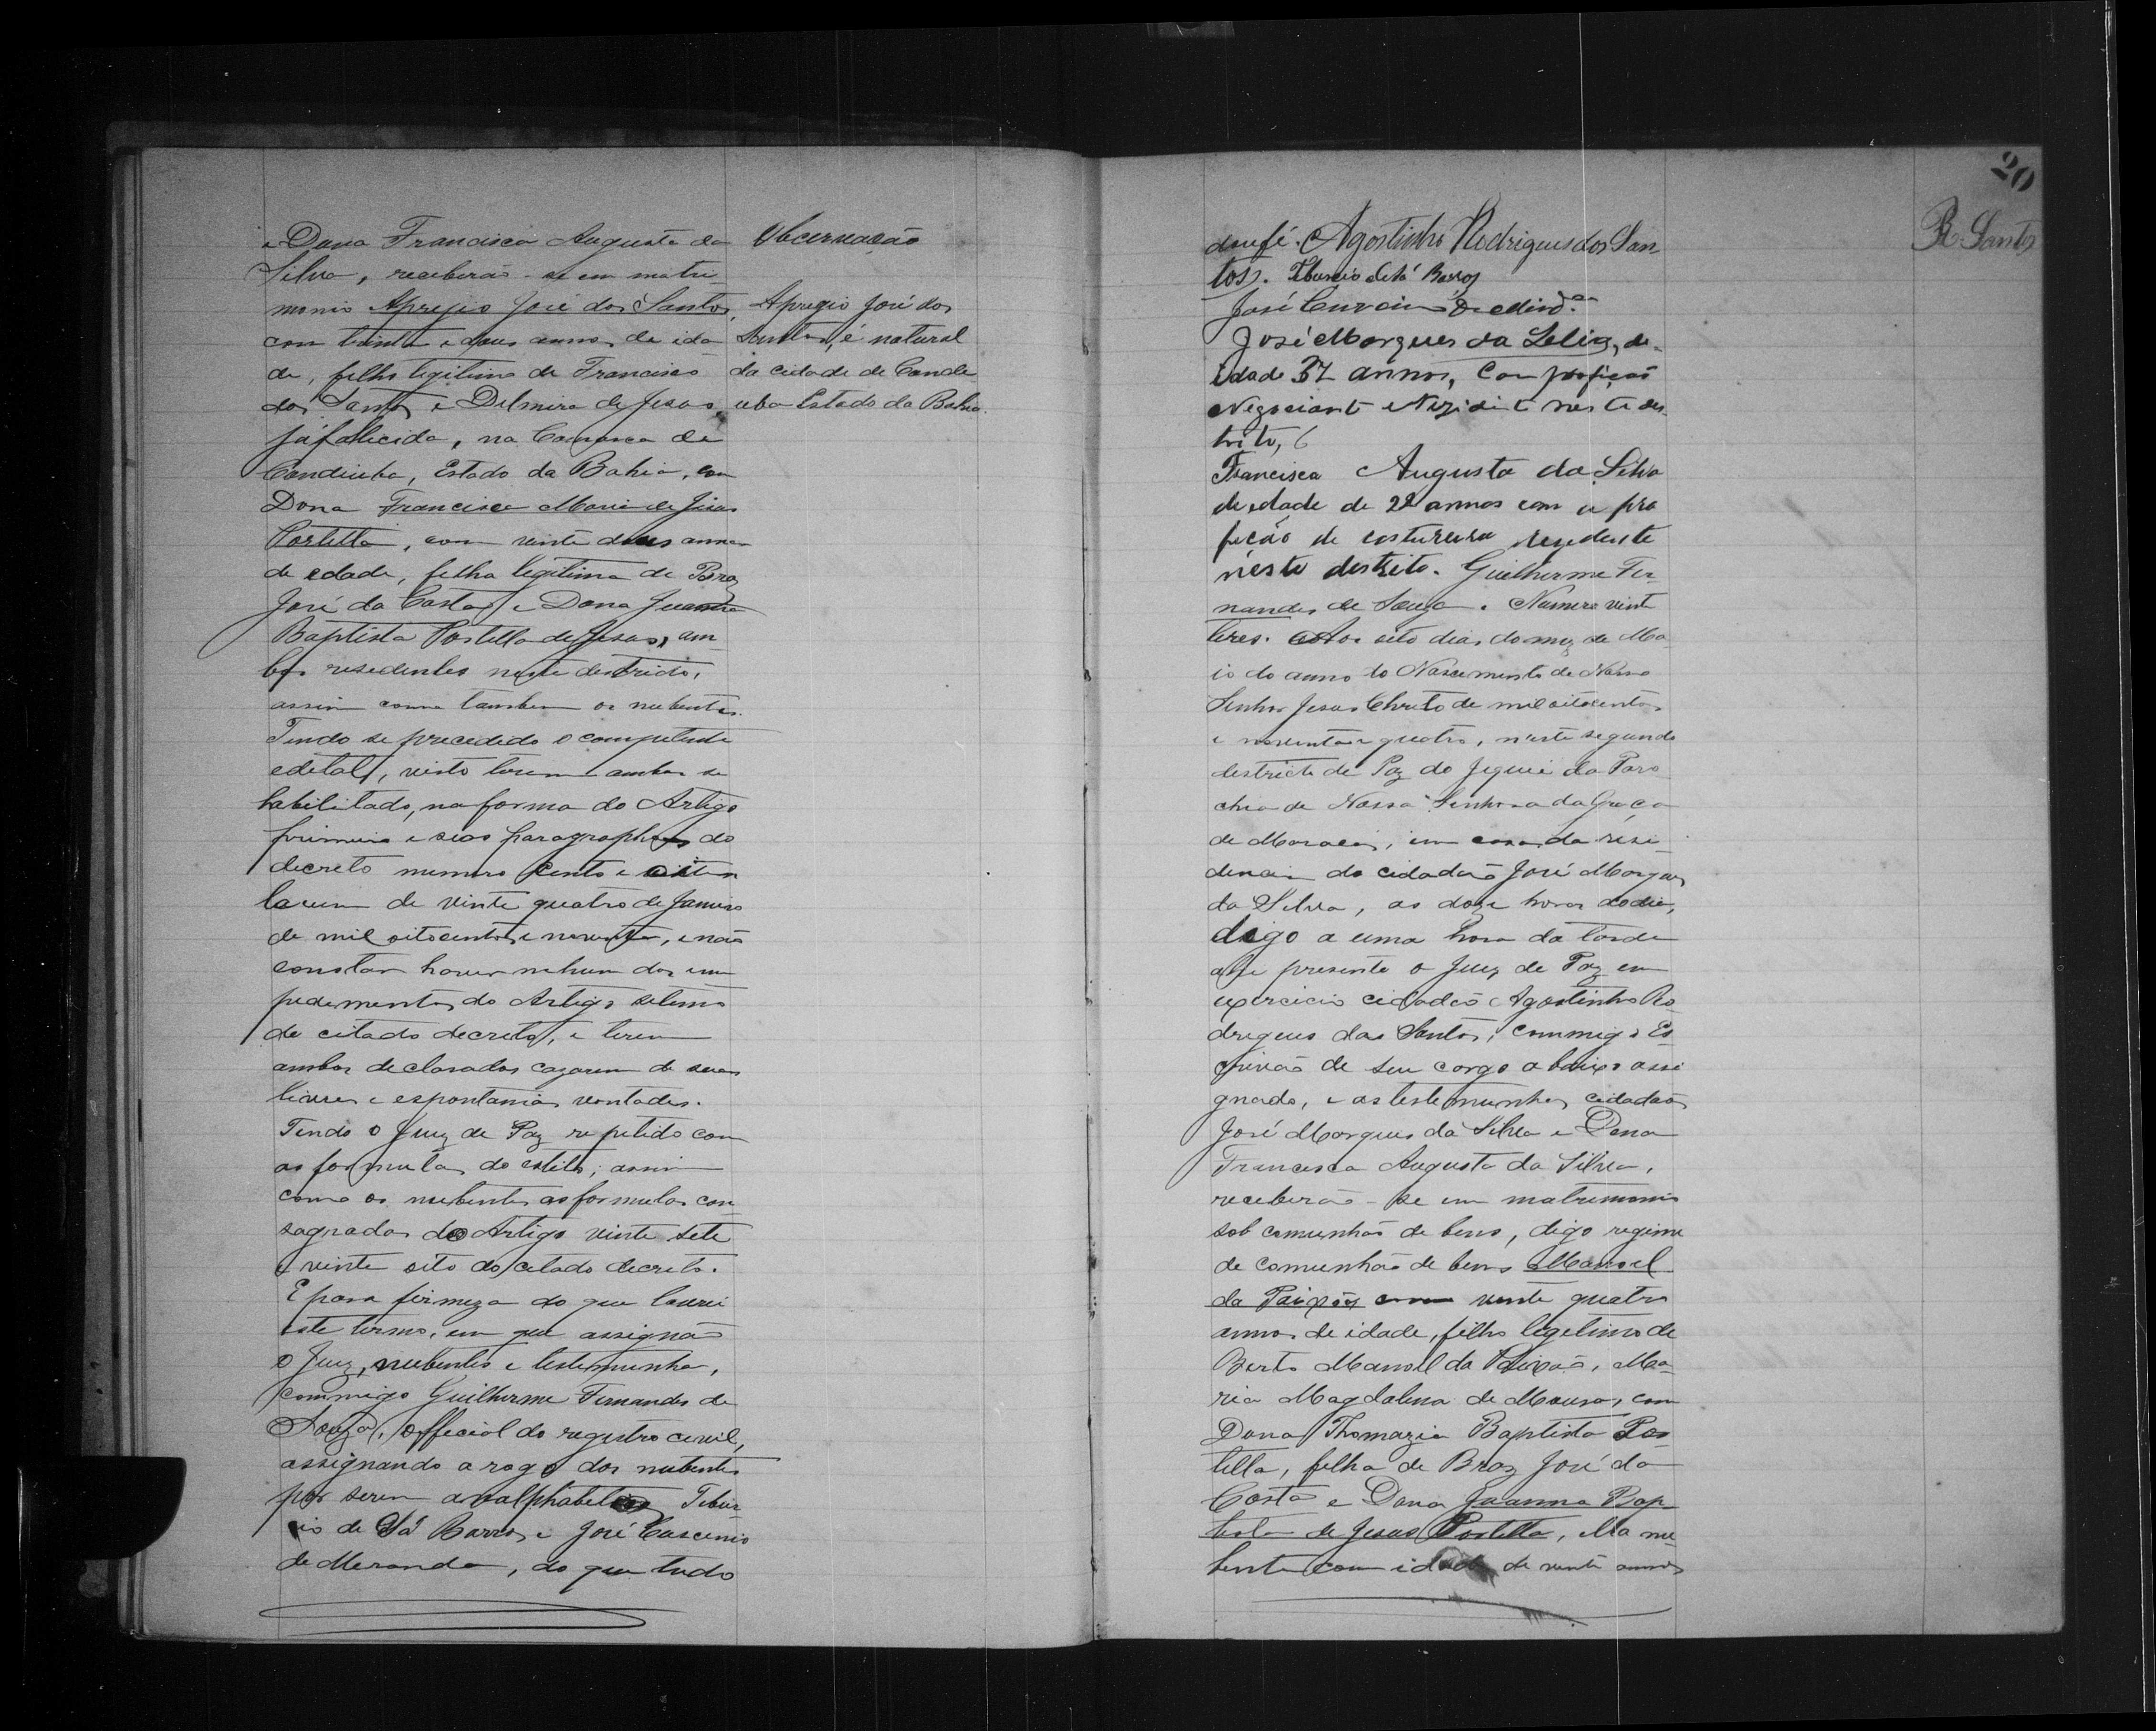 e Dona Francisca Augusta da
Silva, receberão-se em matri
monio Aprejio José dos Santos,
com trinta e dous annos de ida
de, filho legitimo de Francisco
dos Santos e Delmira de Jesus,
já falicida, na Comarca de
Condiuba, Estado da Bahia, com
Dona Francisca Maria de Jesus
Portella, com vinte dous annos
de edade, filha legitima de Braz
José da Costa e Dona Juanna
Baptista Portella de Jesus, am-
bos residentes neste destricto,
assim como tambem os nubentes.
Tendo se precedido o competente
edital, visto terem ambos se
habilitado, na forma do Artigo
primeiro e seos paragraphos do
decreto numero cento e oiten
ta e um de vinte quatro de Janeiro
de mil oitocentos e noventa, e não
constar haver nehum dos im
pedimentos do Artigo setimo
do citado decreto, e terem
ambos declarados cazarem de suas
livres e espontanias vontades.
Tendo o Juiz de Paz repetido com
as formulas do estilo, assim
como os nubentes as formulas con
sagradas do Artigo vinte sete
e vinte oito do citado decreto.
E para firmeza do que lavrei
este termo, em que assignão
o Juiz, nubentes e testemunha,
commigo Guilherme Fernandes de
Souza, official do registro civil,
assignando a rogo dos nubentes
por serem analphabetos Tibur-
cio de Sá Barros e José Cuscenio
de Meranda, do que tudo
Obcervação
Apregio José dos
Santos, é natural
da cidade de Conde
uba Estado da Bahia.
20
R. Santos
dou fé. Agostinho Rodrigues dos San-
tos. Tiburcio de Sá Barros
José
José Marques da Selva, de
Edade 37 annos, Com profiçaõ
Negociante e Rezident neste des
trito, e
Francisca Augusta da Silva
de edade de 22 annos com a pro
ficão de custureira resedente
néste destrito. Guilherme Fer
nandes de Souza. Numero vinte
tres. Aos oito dias do mez de Ma
io do anno do Nascimento de Nosso
Senhor Jesus Christo de mil oitocentos
e noventa e quatro, n'este segundo
destricto de Paz do Jequié da Paro
chia de Nossa Senhora da Graça
de Maracás, em casa da rezi-
dencia do cidadão José Marques
da Silva, as doze horas do dia,
digo a uma hora da tarde
ahi presente o Juiz de Paz em
exercicio cidadão Agostinho Ro
drigues dos Santos, commigo Es
crivão de seu cargo abaixo assi
gnado, e as testemunhas cidadão
José Marques da Silva e Dona
Francisca Augusta da Silva,
receberão-se em matrimonio
sob comunhão de bens, digo regime
de comunhão de bens Manoel
da Paixão com vinte quatro
annos de idade, filho legetimo de
Berto Manoel da Paixão, Ma-
ria Magdalena de Moura, com
Dona Thomazia Baptista Por
tella, filha de Braz José da
Costa e Dona Juanna Bap-
tista de Jesus Portella, Ela nu-
bente com idade de vinte annos